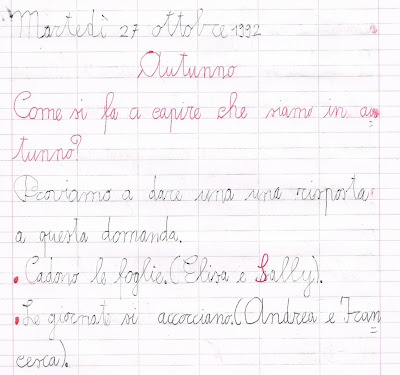 Martedì 27 ottobre 1992
Autunno
Come si fa a capire che siamo in au
tunno?
Proviamo a dare una una risposta
a questa domanda.
• Cadono le foglie. (Elisa e Sally).
• Le giornate si accorciano. (Andrea e Fran
cesca).